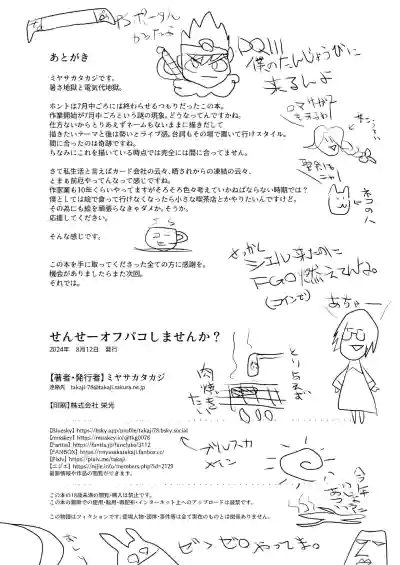 PSポータル
かったよ
DQIII
僕のたんじょうびに
来るんよ
あとがき
ミヤサカタカジです。
暑さ地獄と電気代地獄。
ホントは7月中ごろには終わらせるつもりだったこの本。
作業開始が7月中ごろという謎の現象。どうなってんですかね。
仕方ないからとりあえずネームもないままに描きだして
描きたいテーマと後は勢いとライブ感。台詞もその場で置いて行けスタイル。
間に合ったのは奇跡ですね。
ちなみにこれを描いている時点では完全には間に合ってません。
さて私生活と言えばカード会社の云々、晒されからの凍結の云々。
とまぁ前厄やってんなって感じですね。
作家業も10年くらいやってますがそろそろ色々考えていかねばならない時期では？
僕としては絵で食って行けなくなったら小さな喫茶店とかやりたいんですけど。
その為にも絵を頑張らなきゃダメか。そうか。
応援してください。
そんな感じです。
この本を手に取ってくださった全ての方に感謝を。
機会がありましたらまた次回。
それでは。
ネコの人
せっかく
シエル来たのに
FGO燃えてんね。
(コインで)
あちゃー
せんせーオフパコしませんか？
2024年　8月12日　発行
【著者・発行者】ミヤサカタカジ
連絡先　takaji-78@takaji.sakura.ne.jp
【印刷】株式会社 栄光
とりあえず
肉焼きたい
【Bluesky】https://bsky.app/profile/takaji78.bsky.social
【Fantia】https://fantia.jp/fanclubs/3112
【FANBOX】https://miyasakatakaji.fanbox.cc/
【Pixiv】https://pixiv.me/takaji
【ニジエ】https://nijie.info/members.php?id=2129
最新情報や作品の閲覧ができます。
この本の18歳未満の閲覧・購入は禁止です。
この本の画像での使用・転用・再配布・インターネット上へのアップロードは厳禁です。
この物語はフィクションです。登場人物・団体・事件等は全て実在のものとは関係ありません。
ゼンゼロやってま。